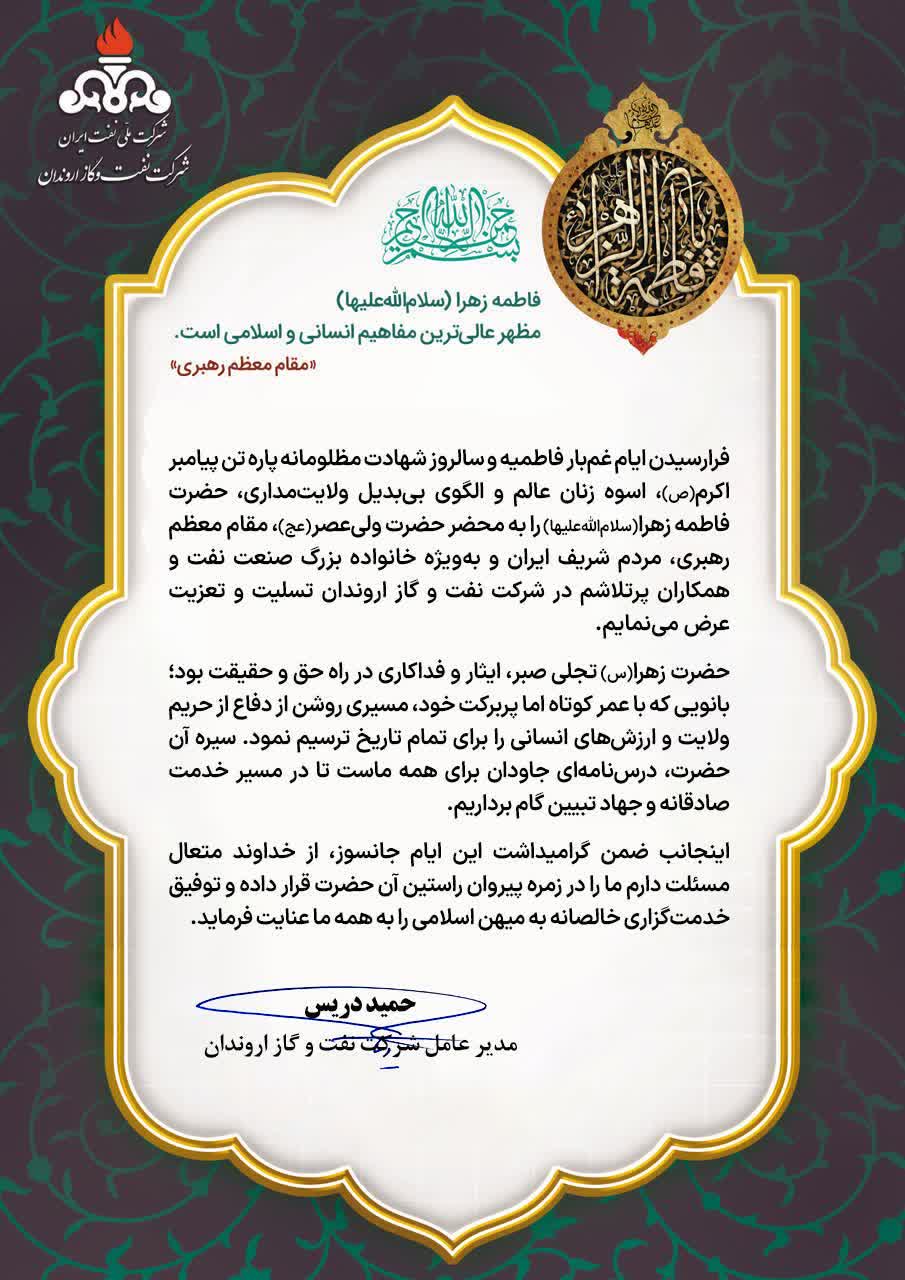 شرکت ملی نفت ایران
شرکت نفت و گاز اروندان
یا فاطمة الزهراء
بسم الله الرحمن الرحیم
فاطمه زهرا (سلام‌الله‌علیها)
مظهر عالی‌ترین مفاهیم انسانی و اسلامی است.
«مقام معظم رهبری»
فرارسیدن ایام غم‌بار فاطمیه و سالروز شهادت مظلومانه پاره تن پیامبر
اکرم(ص)، اسوه زنان عالم و الگوی بی‌بدیل ولایت‌مداری، حضرت
فاطمه زهرا(سلام‌الله‌علیها) را به محضر حضرت ولی‌عصر(عج)، مقام معظم
رهبری، مردم شریف ایران و به‌ویژه خانواده بزرگ صنعت نفت و
همکاران پرتلاشم در شرکت نفت و گاز اروندان تسلیت و تعزیت
عرض می‌نمایم.
حضرت زهرا(س) تجلی صبر، ایثار و فداکاری در راه حق و حقیقت بود؛
بانویی که با عمر کوتاه اما پربرکت خود، مسیری روشن از دفاع از حریم
ولایت و ارزش‌های انسانی را برای تمام تاریخ ترسیم نمود. سیره آن
حضرت، درس‌نامه‌ای جاودان برای همه ماست تا در مسیر خدمت
صادقانه و جهاد تبیین گام برداریم.
اینجانب ضمن گرامیداشت این ایام جانسوز، از خداوند متعال
مسئلت دارم ما را در زمره پیروان راستین آن حضرت قرار داده و توفیق
خدمت‌گزاری خالصانه به میهن اسلامی را به همه ما عنایت فرماید.
حمید دریس
مدیر عامل شرکت نفت و گاز اروندان